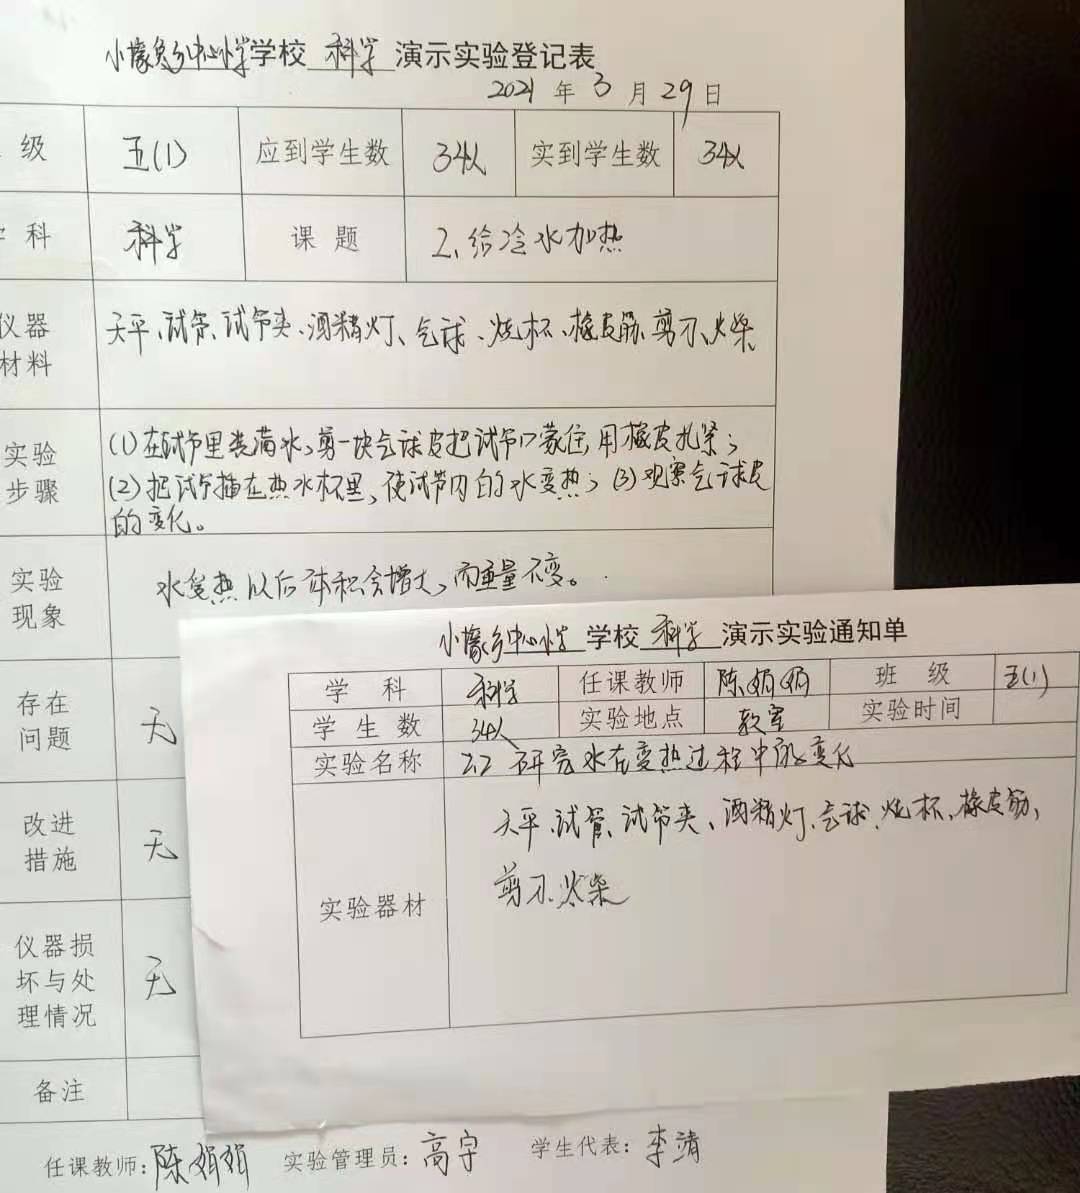 小橡乡中心小学学校 科学 演示实验登记表
2021 年 3 月 29 日
级 五(1) 应到学生数 34人 实到学生数 34人
科 科学 课题 2、给冷水加热
仪器
材料
天平、试管、试管夹、酒精灯、气球、烧杯、橡皮筋、剪刀、火柴
实验
步骤
(1)在试管里装满水,剪一块气球皮把试管口蒙住,用橡皮扎紧;
(2)把试管插在热水杯里,使试管内的水变热;(3)观察气球皮
的变化。
实验
现象
水受热以后体积会增大,而重量不变。
存在
问题
无
改进
措施
无
仪器损
坏与处
理情况
无
备注
任课教师:陈娟娟 实验管理员:高宇 学生代表:李靖
小橡乡中心小学 学校 科学 演示实验通知单
学 科 科学 任课教师 陈娟娟 班 级 五(1)
学 生 数 34人 实验地点 教室 实验时间
实验名称 2.2 研究水在变热过程中的变化
实验器材
天平、试管、试管夹、酒精灯、气球、烧杯、橡皮筋、
剪刀、火柴